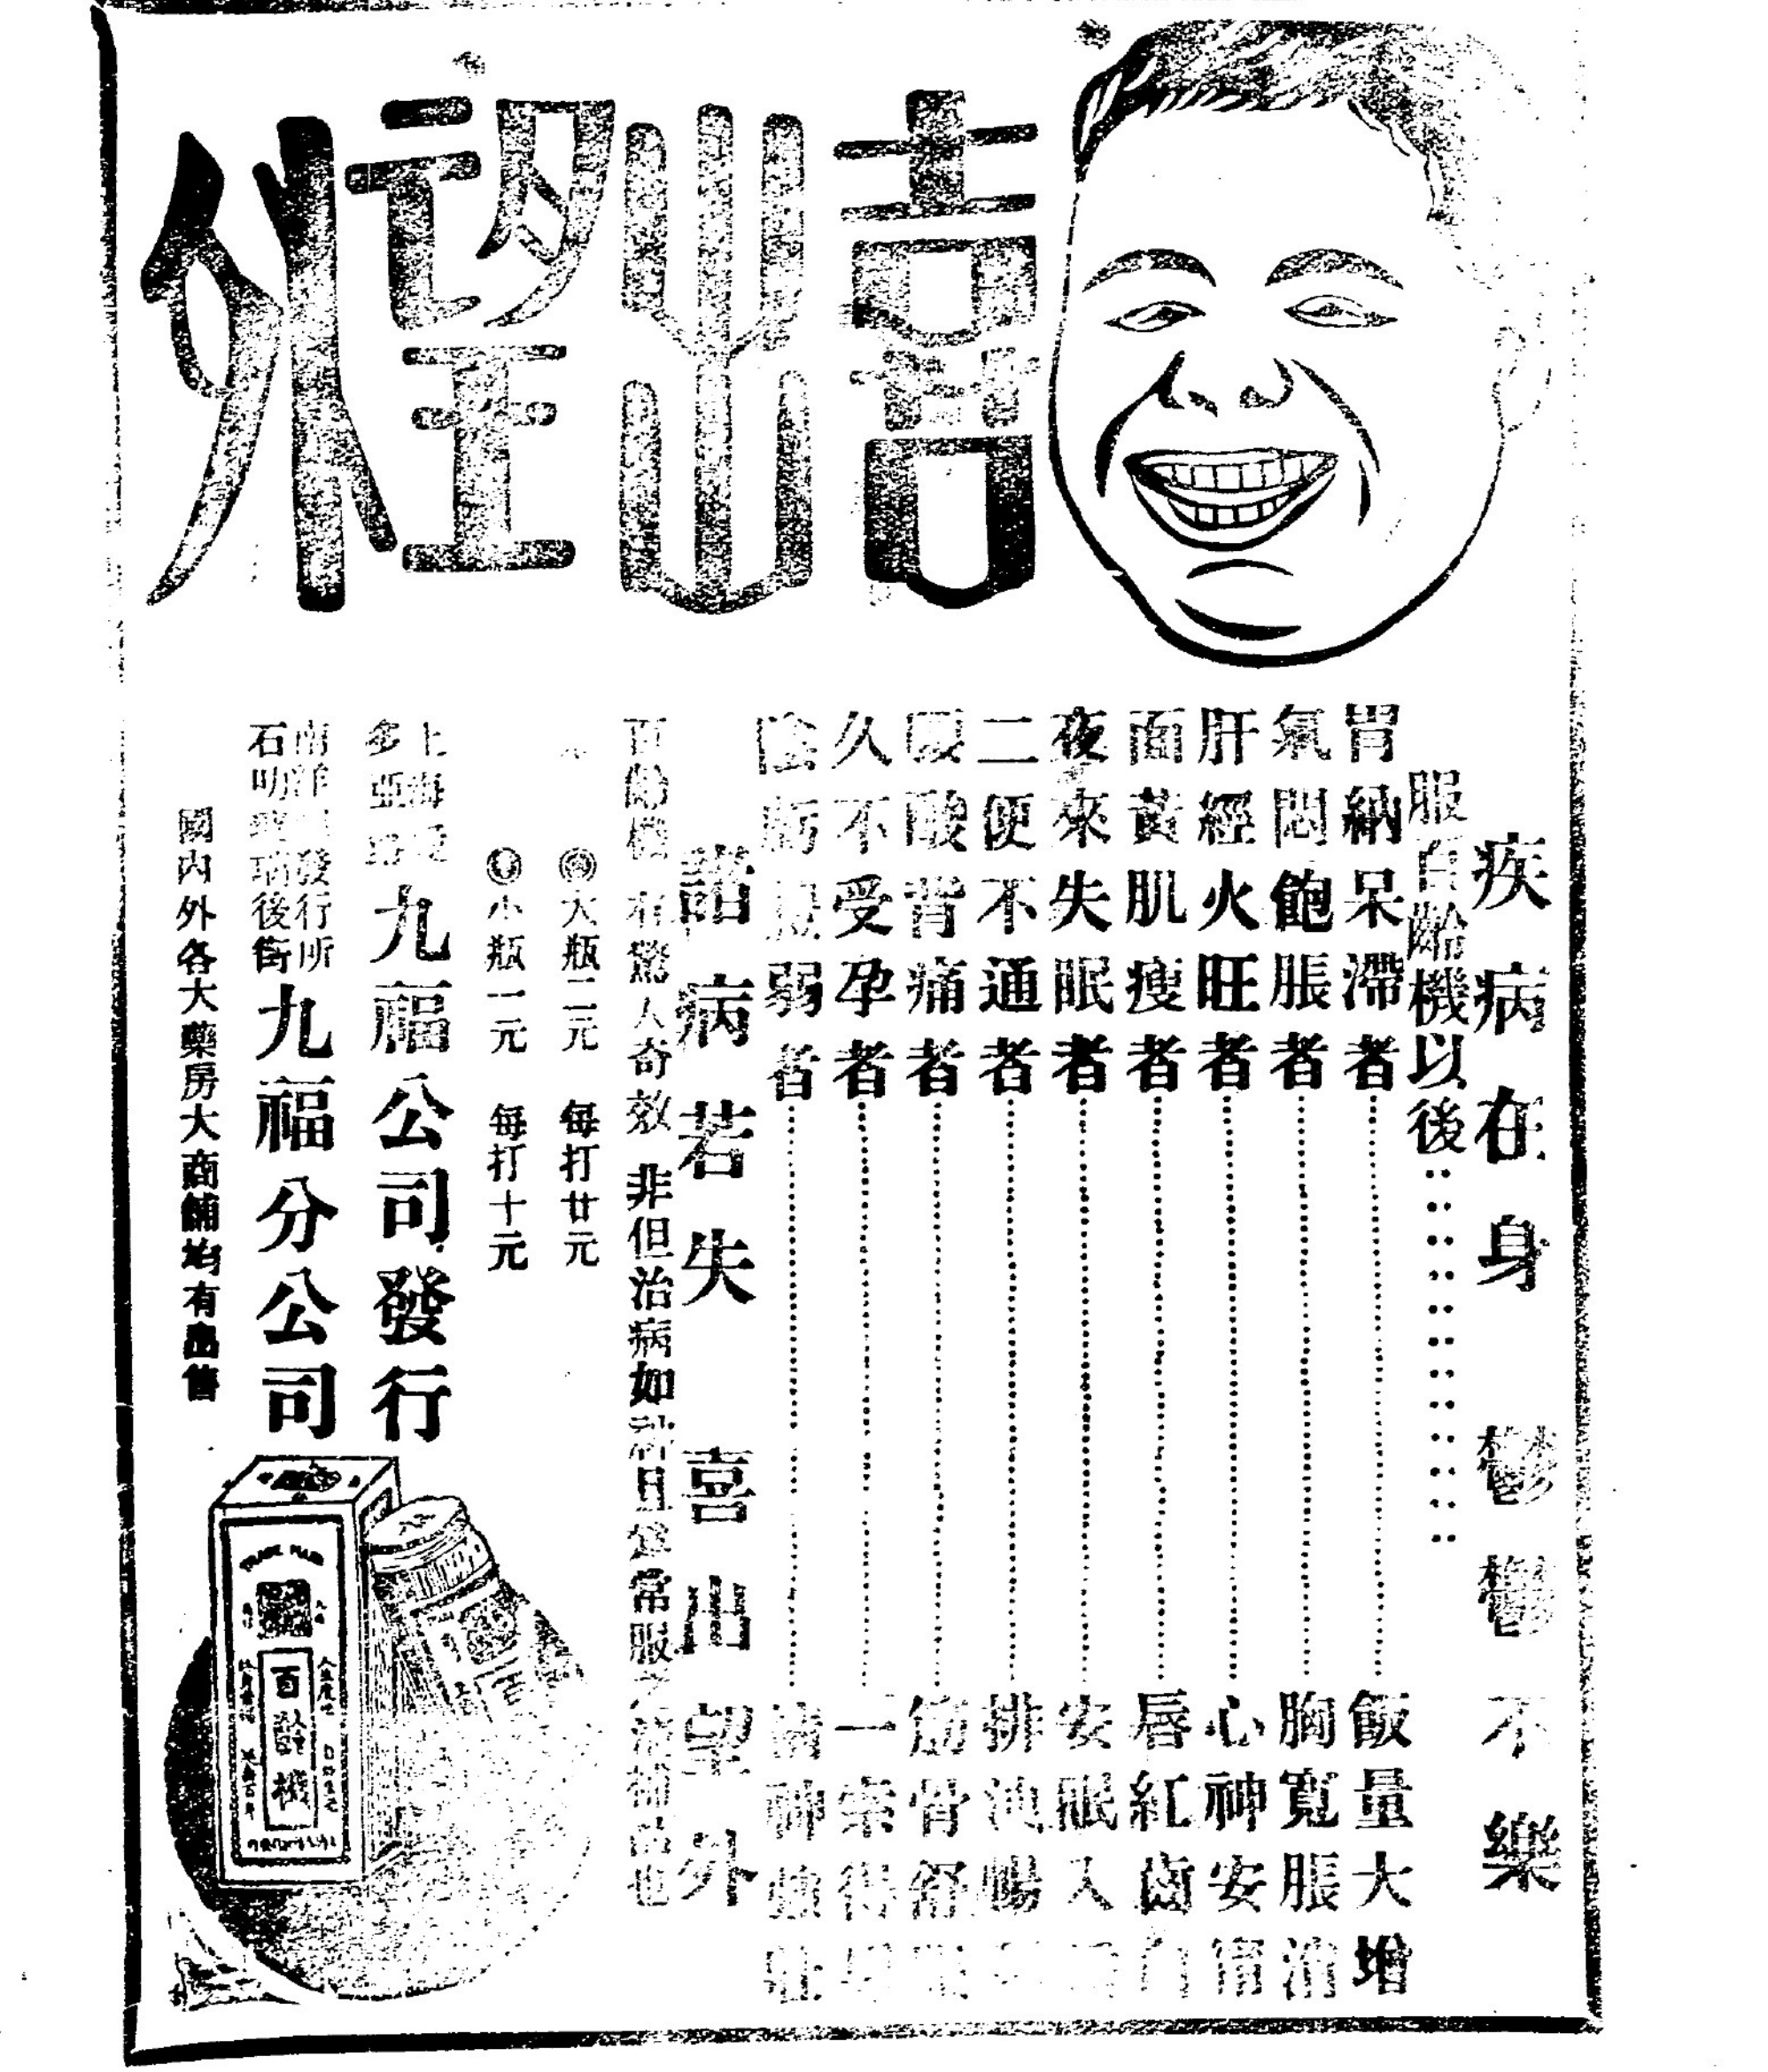 喜出望外
疾病在身 鬱鬱不樂
服百齡機以後
胃納呆滯者 飯量大增
氣悶飽脹者 胸寬脹消
肝經火旺者 心神安甯
面黃肌瘦者 唇紅齒白
夜來失眠者 安眠入
二便不通者 排洩暢
腰酸背痛者 筋骨舒
久不受孕者 一索得
陰虧 弱者 精神強壯
諸病若失 喜出望外
百齡機 有驚人奇效 非但治病如神且為常服之滋補品也
大瓶二元 每打廿元
小瓶一元 每打十元
上海
多亞路
九福公司發行
南洋 發行所
石叻 後街
九福分公司
國內外各大藥房大商舖均有出售
TRADE MARK
百齡機